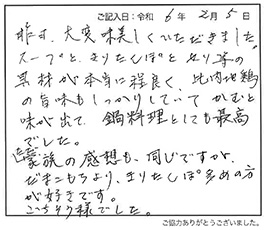 ご記入日:令和 6 年 2月 5 日
昨日、大変美味しくいただきました。
スープと、きりたんぽと、せり等の
具材が本当に程良く、比内地鶏
の旨味もしっかりしていて かむと
味が出て、鍋料理としても最高
でした。
家族の感想も、同じですが、
だまこもちより、きりたんぽ多めの方
が好きです。
ごちそう様でした。
ご協力ありがとうございました。